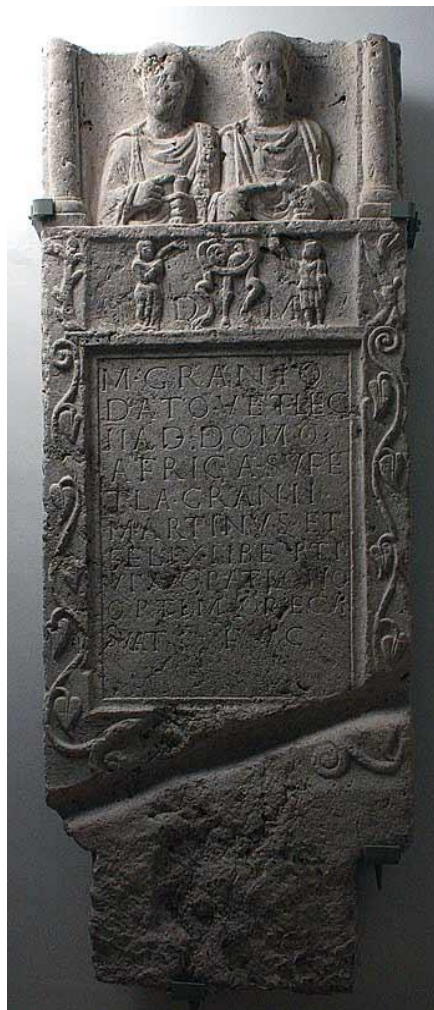 D M
M·GRANIO
DATO·VET·LEG
II AD·DOMO
AFRICA·SVFE
TLA·GRANII
MARTINVS·ET
FELIX LIBERTI
OPTIM